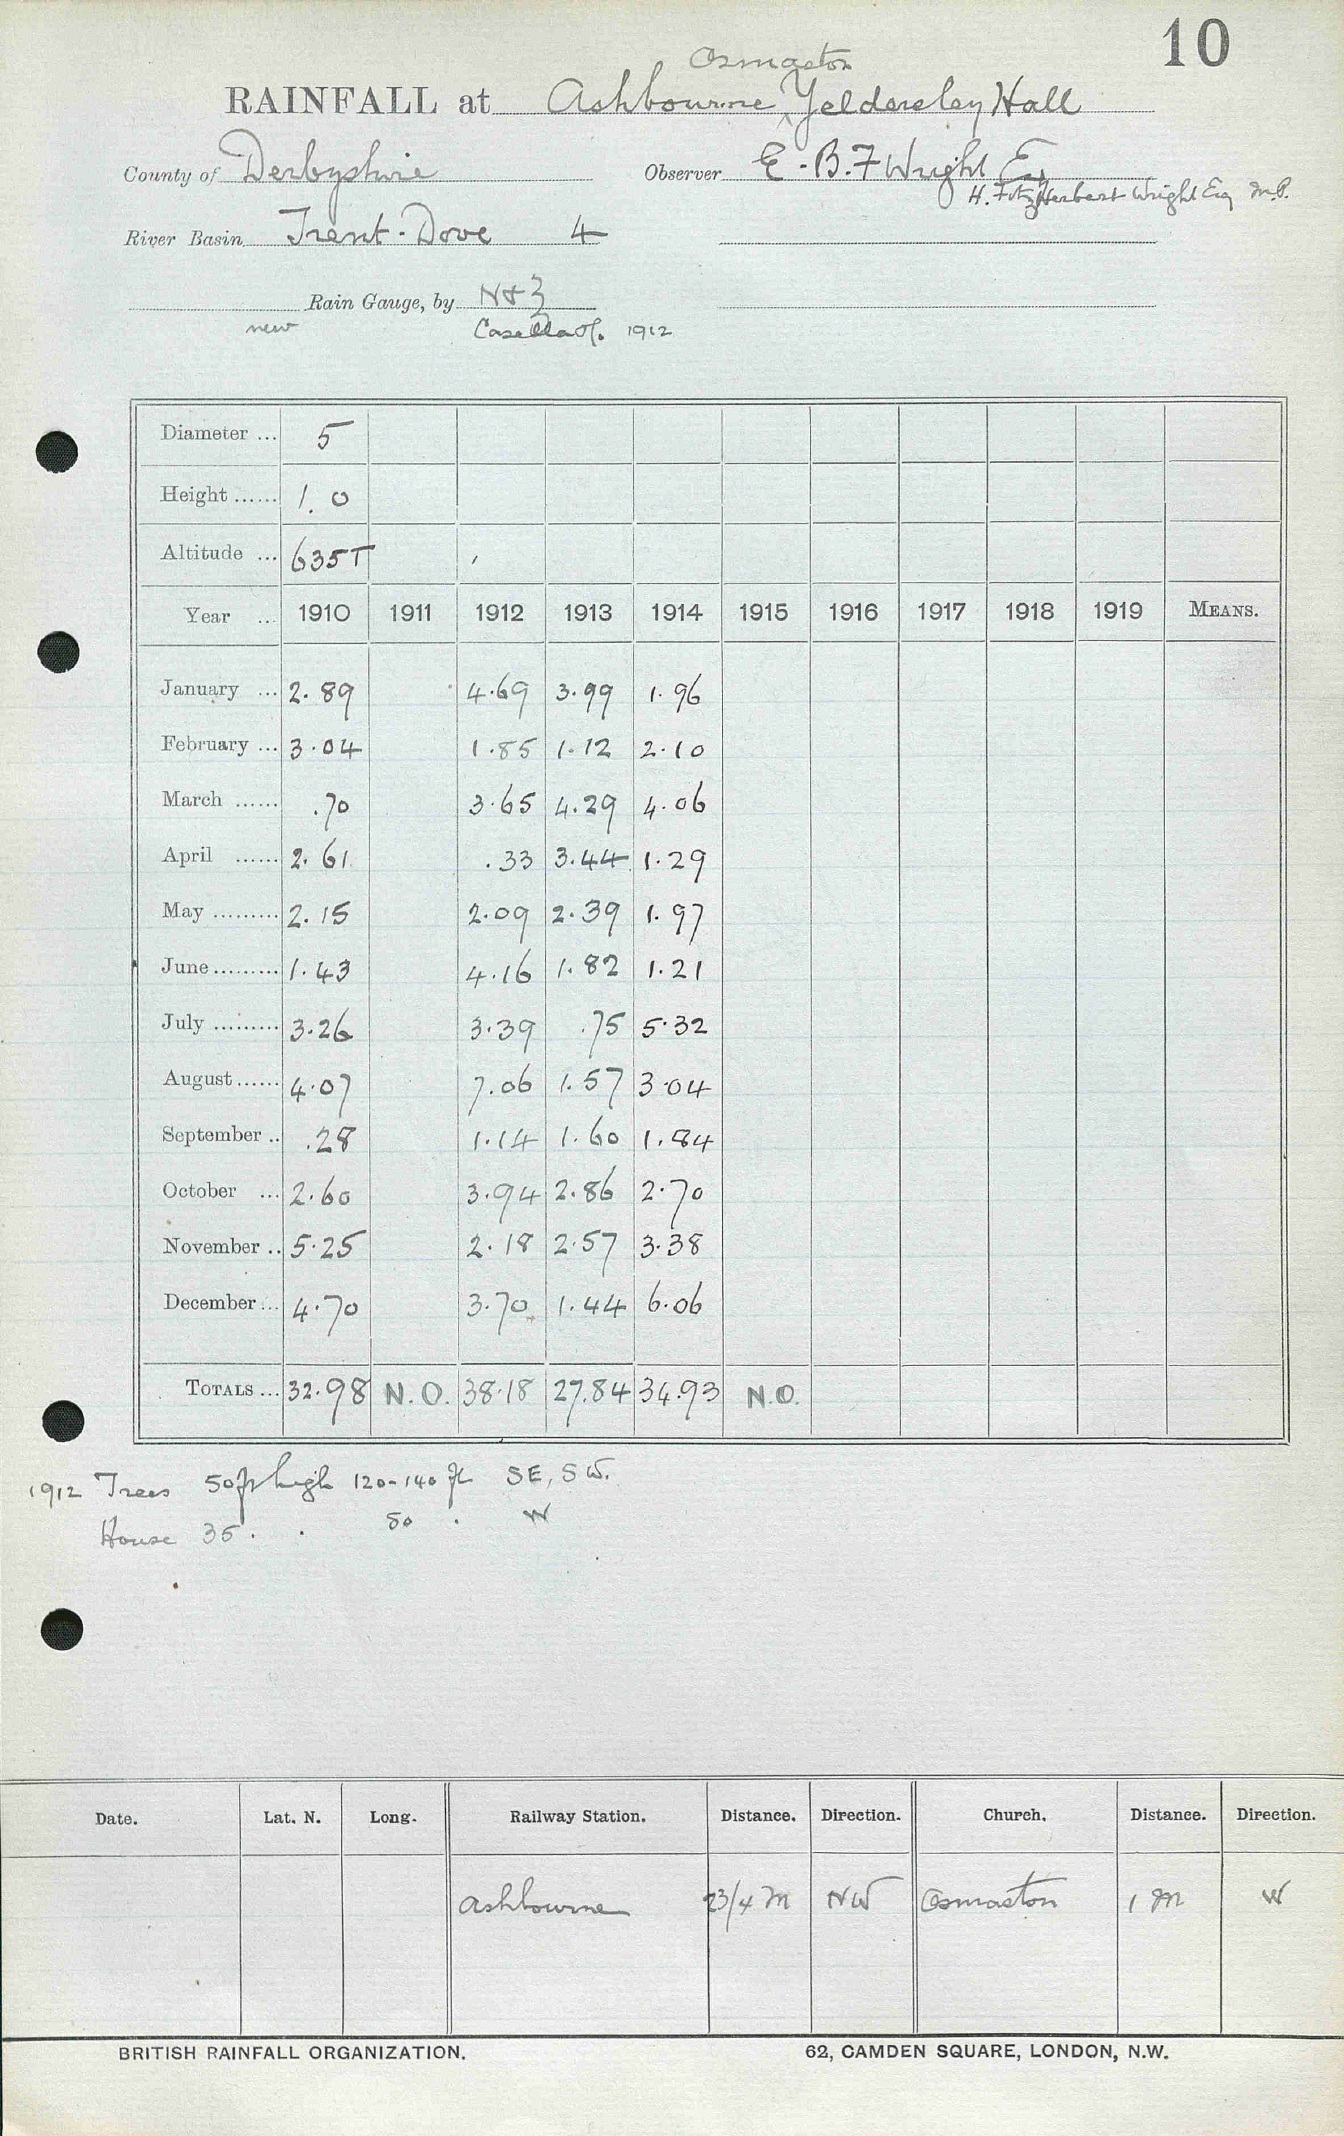 10
Osmaston
RAINFALL at Ashbourne, Yeldersley Hall
County of Derbyshire Observer E. B. F Wright Esq
H. FitzHerbert Wright Esq M.P.
River Basin Trent-Dove 4
Rain Gauge, by N & Z
new Casella 1912
Diameter ... 5
Height ...... 1.0
Altitude ... 635T
Year ... 1910 1911 1912 1913 1914 1915 1916 1917 1918 1919 MEANS.
January ... 2.89 4.69 3.99 1.96
February ... 3.04 1.85 1.12 2.10
March ...... .70 3.65 4.29 4.06
April ...... 2.61 .33 3.44 1.29
May ......... 2.15 2.09 2.39 1.97
June ......... 1.43 4.16 1.82 1.21
July ......... 3.26 3.39 .75 5.32
August ...... 4.07 7.06 1.57 3.04
September .. .28 1.14 1.60 1.84
October ... 2.60 3.94 2.86 2.70
November .. 5.25 2.18 2.57 3.38
December ... 4.70 3.70 1.44 6.06
TOTALS ... 32.98 N.O. 38.18 27.84 34.93 N.O.
1912 Trees 50 ft high 120-140 ft SE, SW.
House 35 . . 80 . W
Date. Lat. N. Long. Railway Station. Distance. Direction. Church. Distance. Direction.
Ashbourne 2 3/4 M NW Osmaston 1 M W
BRITISH RAINFALL ORGANIZATION. 62, CAMDEN SQUARE, LONDON, N.W.